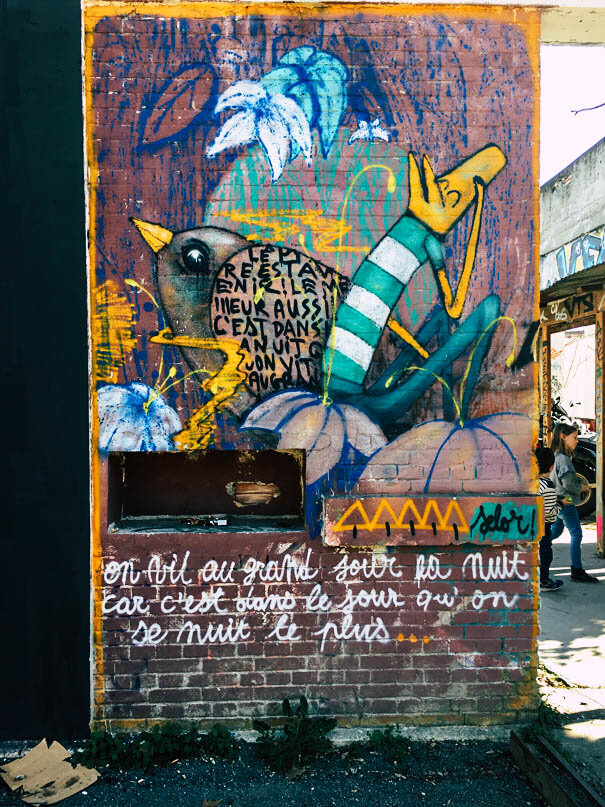 LE PI
RE EST A V
ENIR LE M
IIIEUR AUSSI
C'EST DANS
A NUIT Q
UON VIT
AU GRAN
Selor!
on vit au grand jour la nuit
car c'est dans le jour qu'on
se nuit le plus...